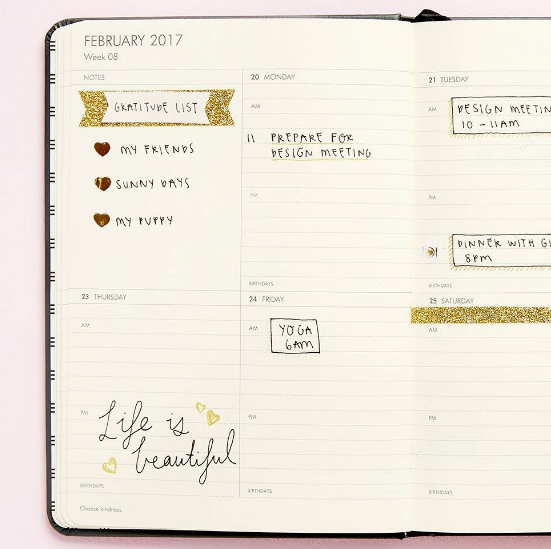 FEBRUARY 2017
Week 08
NOTES
GRATITUDE LIST
MY FRIENDS
SUNNY DAYS
MY PUPPY
20 MONDAY
AM
11 PREPARE FOR
DESIGN MEETING
PM
BIRTHDAYS
21 TUESDAY
AM
DESIGN MEETIN
10 - 11AM
PM
DINNER WITH G
8PM
BIRTHDAYS
23 THURSDAY
AM
PM
Life is
beautiful
BIRTHDAYS
Choose kindness.
24 FRIDAY
AM
YOGA
6AM
PM
BIRTHDAYS
25 SATURDAY
AM
PM
BIRTHDAYS